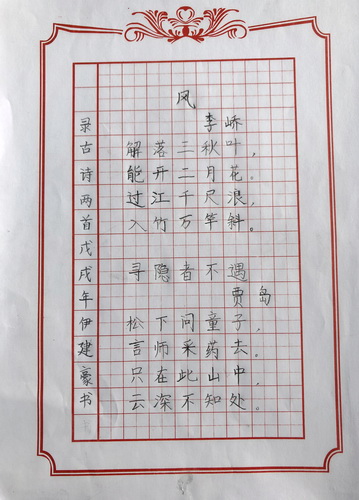 风
李峤
解落三秋叶，
能开二月花。
过江千尺浪，
入竹万竿斜。
寻隐者不遇
贾岛
松下问童子，
言师采药去。
只在此山中，
云深不知处。
录古诗两首戊戌年伊建豪书